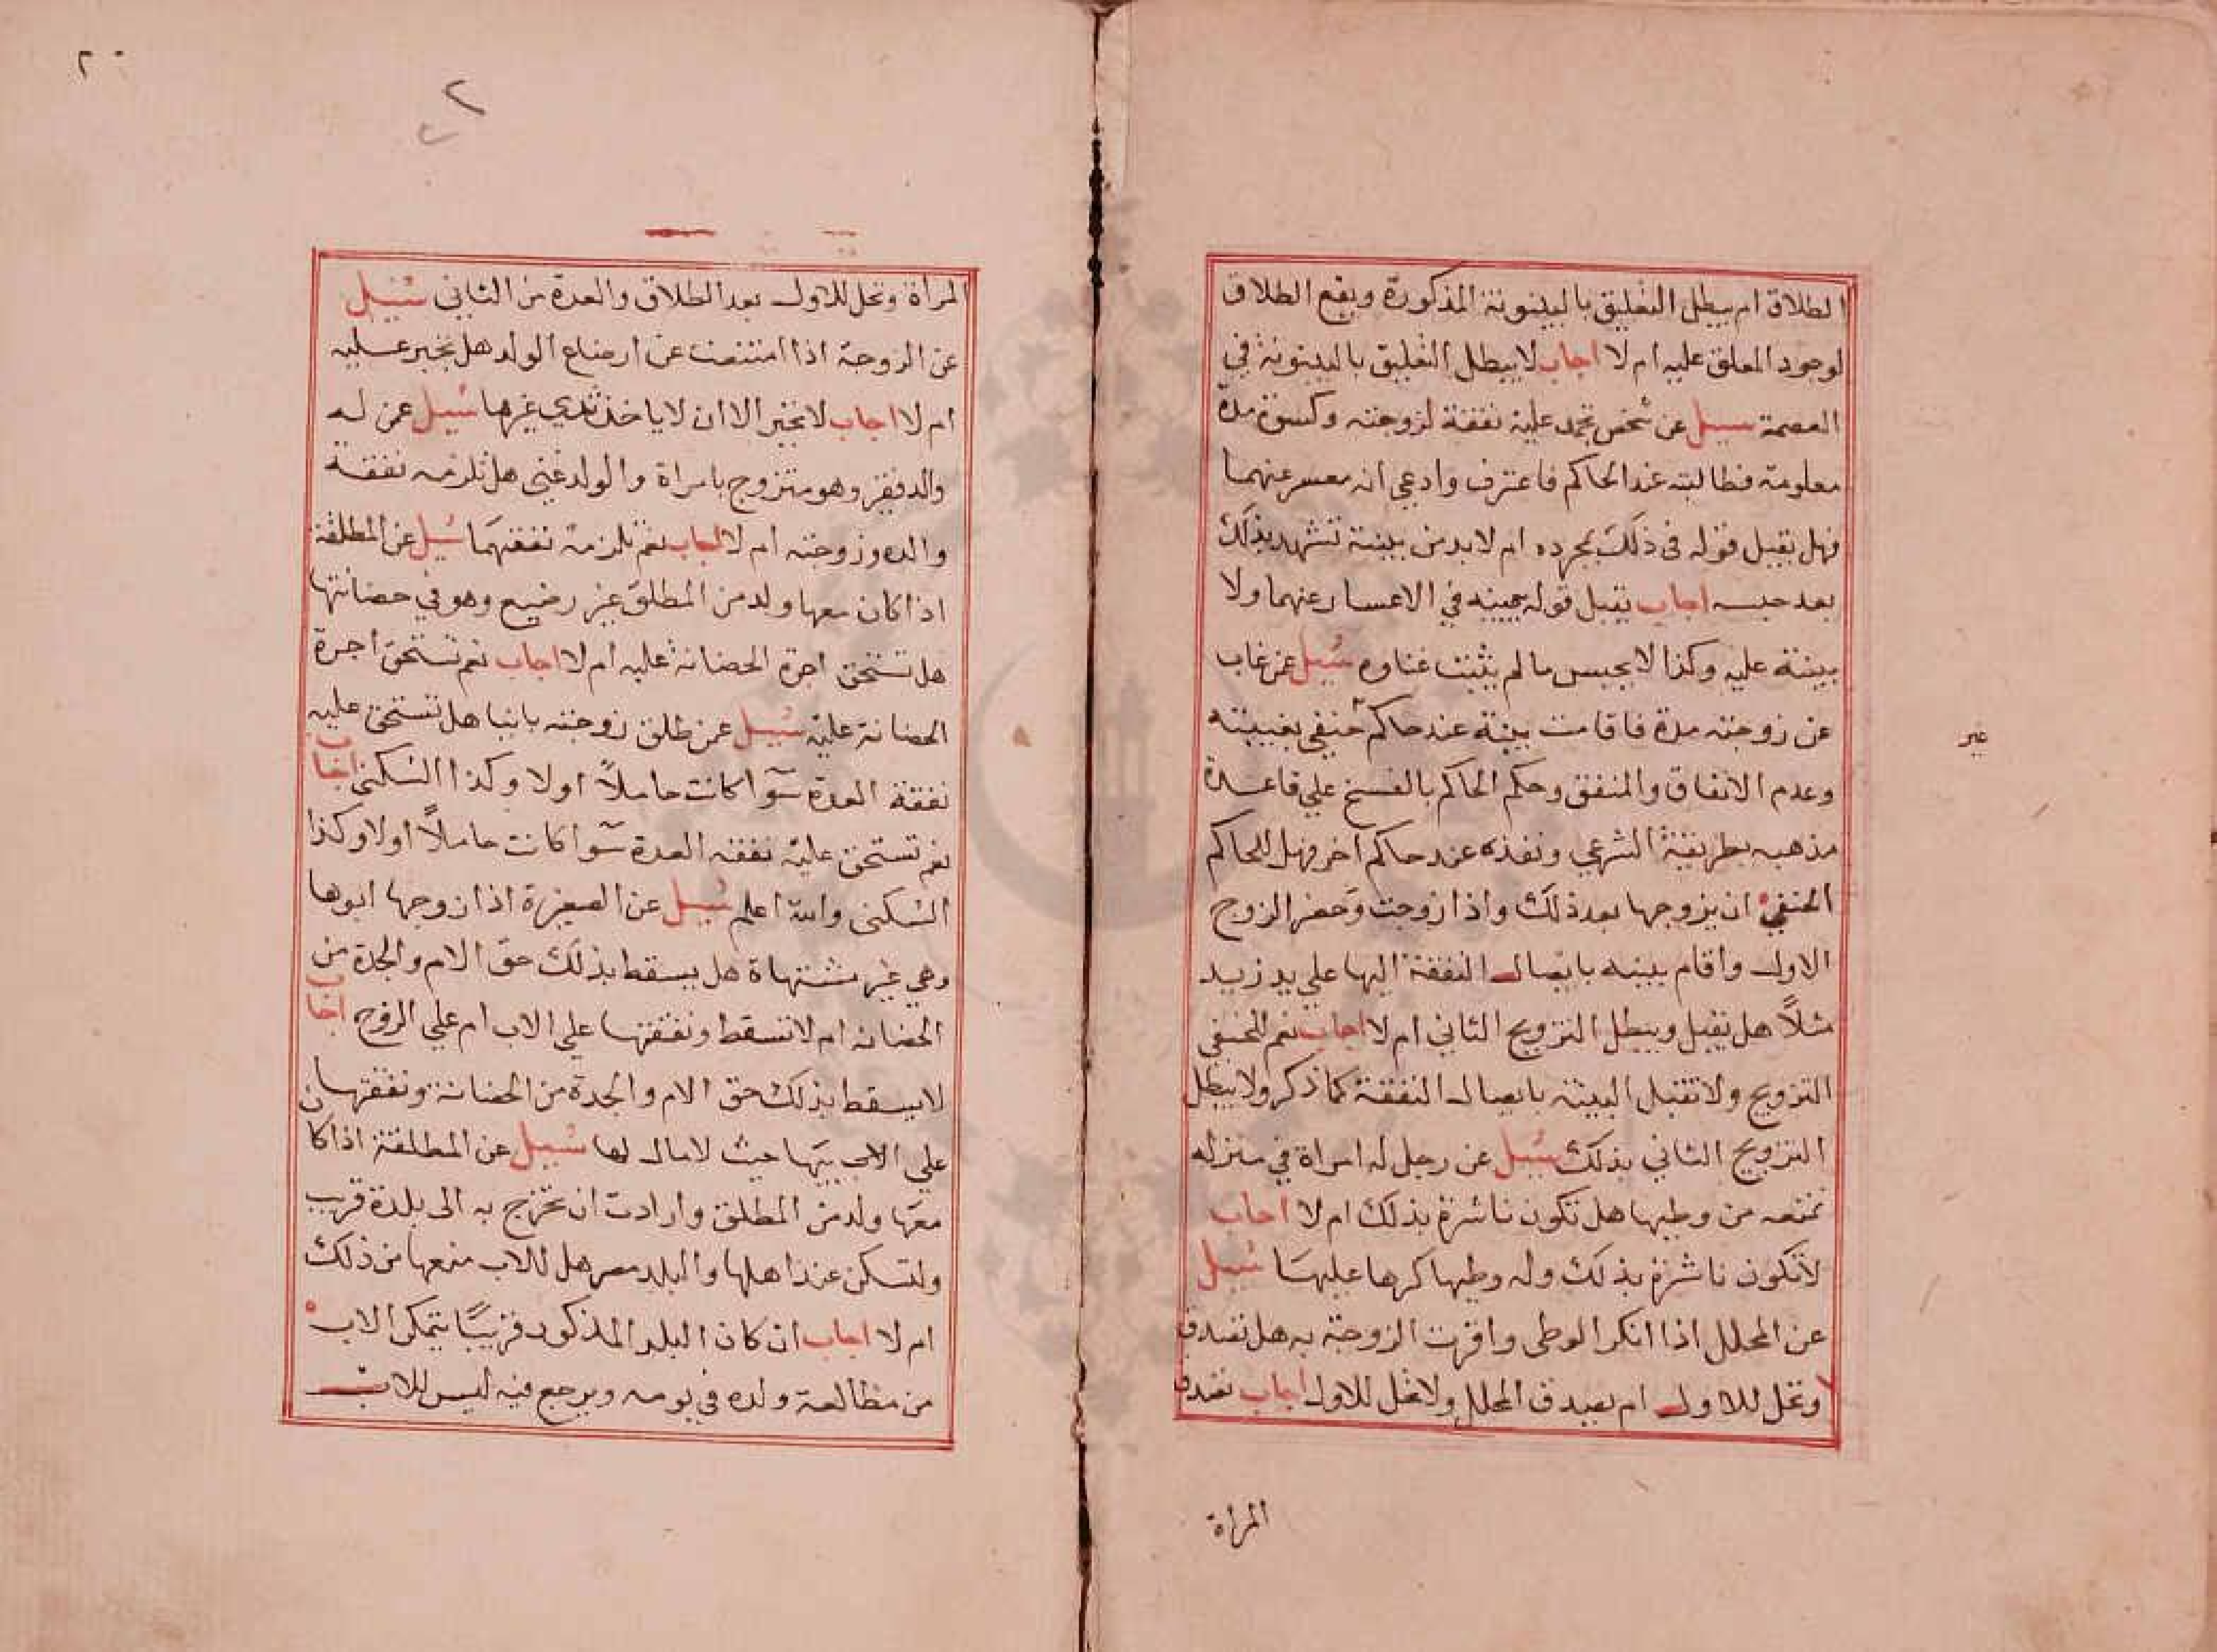 الطلاق ام يبطل التعليق بالبينونة المذكورة ويقع الطلاق
لوجود المعلق عليه ام لا اجاب لا يبطل التعليق بالبينونة في
العصمة سيل عن شخص تجمد عليه نفقة لزوجته وكسوة مدة
معلومة فطالبته عند الحاكم فاعترف وادعي انه معسر عنهما
فهل يقبل قوله في ذلك بمجرده ام لابد من بينة تشهد بذلك
بعد حبسه اجاب يقبل قوله بيمينه في الاعسار عنهما ولا
بينة عليه وكذا لا يحبس ما لم يثبت غناوه سيل عمن غاب
عن زوجته مدة فاقامت بينة عند حاكم حنفي بغيبته
غير
وعدم الانفاق والمنفق وحكم الحاكم بالفسخ علي قاعدة
مذهبه بطريقة الشرعي ونفذه عند حاكم اخر فهل للحاكم
الحنفي ان يزوجها بعد ذلك واذا زوجت وحضر الزوج
الاول واقام بينه بايصال النفقة اليها علي يد زيد
مثلاً هل تقبل ويبطل التزويج الثاني ام لا اجاب نعم للحنفي
التزويج ولا تقبل البينة بايصال النفقة كما ذكر ولا يبطل
التزويج الثاني بذلك سيل عن رجل له امراة في منزله
تمنعه من وطيها هل تكون ناشزة بذلك ام لا اجاب
لا تكون ناشزة بذلك وله وطيها كرها عليها سيل
عن المحلل اذا انكر الوطي واقرت الزوجة به هل تصدق
وتحل للاول ام يصدق المحلل ولا تحل للاول اجاب تصدق
المراة
٢٠
المراة وتحل للاول بعد الطلاق والعدة من الثاني سيل
عن الزوجة اذا امتنعت عن ارضاع الولد هل تجبر عليه
ام لا اجاب لا تجبر الا ان لا ياخذ ثدي غيرها سيل عمن له
والد فقير وهو متزوج بامراة والولد غني هل تلزمه نفقة
والده وزوجته ام لا اجاب نعم تلزمه نفقتهما سيل عن المطلقة
اذا كان معها ولد من المطلق غير رضيع وهو في حضانتها
هل تستحق اجرة الحضانة عليه ام لا اجاب نعم تستحق اجرة
الحضانة عليه سيل عمن طلق زوجته باينا هل تستحق عليه
نفقة العدة سوآ كانت حاملاً اولا وكذا السكني اجاب
نعم تستحق عليه نفقة العدة سوآ كانت حاملاً اولا وكذا
السكني والله اعلم سيل عن الصغيرة اذا زوجها ابوها
وهي غير مشتهاة هل يسقط بذلك حق الام والجدة من
الحضانة ام لا تسقط ونفقتها علي الاب ام علي الزوج اجاب
لا يسقط بذلك حق الام والجدة من الحضانة ونفقتها
علي الاب حيث لا مال لها سيل عن المطلقة اذا كان
معها ولد من المطلق وارادت ان تخرج به الى بلدة قريب
ولتسكن عند اهلها والبلد مصر هل للاب منعها من ذلك
ام لا اجاب ان كان البلد المذكور قريبًا يتمكن الاب
من مطالعة ولده في يومه ويرجع فيه ليس للاب